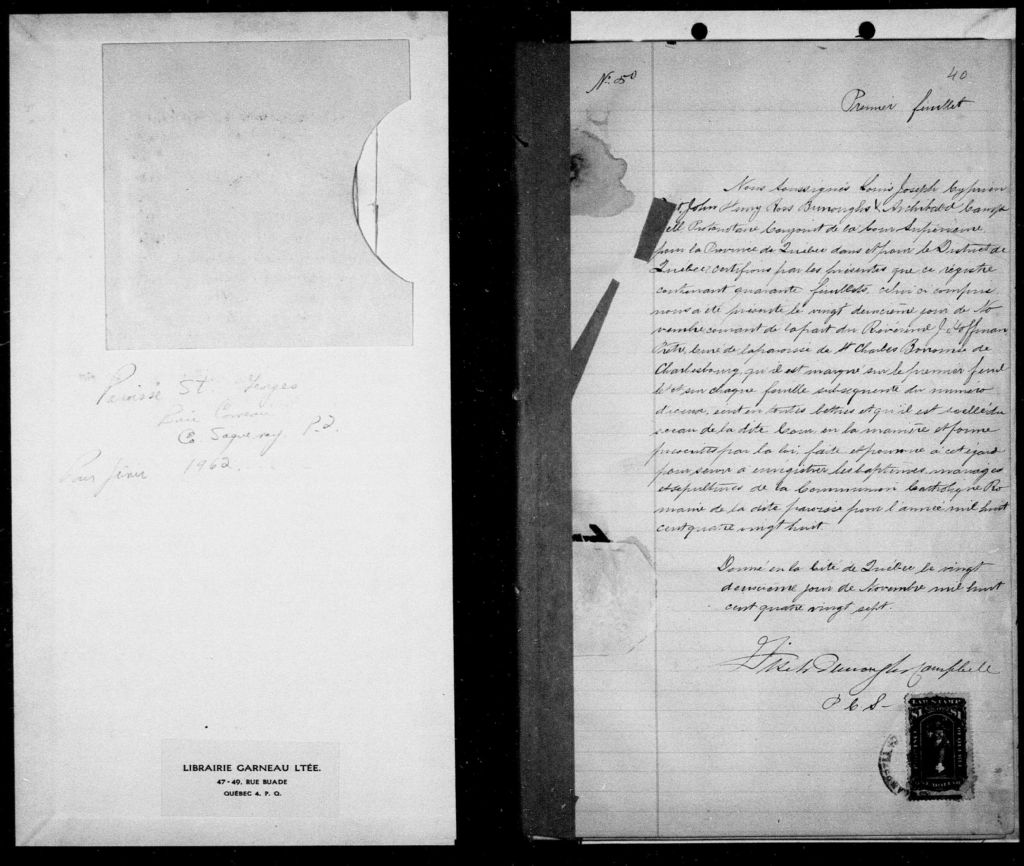 Paroisse St. Georges
Baie Comeau
Co. Saguenay P.Q.
Pour finir 1962
LIBRAIRIE GARNEAU LTÉE.
47 - 49, RUE BUADE
QUÉBEC 4, P. Q.
No. 50
40
Premier feuillet
Nous Soussignés Louis Joseph Cyprien
John Henry Ross Burroughs & Archibald Camp
ell Protonotaire Conjoint de la Cour Supérieure
pour la Province de Québec dans et pour le District de
Québec certifions par les présentes que ce régistre
contenant quarante feuillets, celui ci compris
nous a été présenté le vingt deuxième jour de No
vembre courant de la part du Révérend J. Hoffman
Ptre, Curé de la paroisse de St Charles Borromée de
Charlesbourg, qu'il est marqué sur le premier feuil
let et sur chaque feuille subséquente du numéro
écrit en toutes lettres et qu'il est scellé du
sceau de la dite Cour, en la manière et forme
prescrites par la loi, faite et pourvue à cet égard
pour servir à enrégistrer les baptêmes, mariages
et sépultures de la Communion Catholique Ro
maine de la dite paroisse pour l'année mil huit
cent quatre vingt huit.
Donné en la Cité de Québec le vingt
deuxième jour de Novembre mil huit
cent quatre vingt sept.
Burroughs Campbell
P C S
LAW STAMP
$1 $1